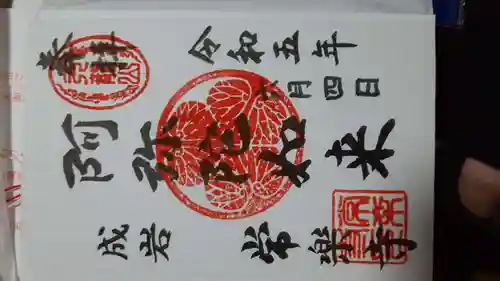 奉拝
令和五年
六月四日
阿弥陀如来
成岩
常楽寺